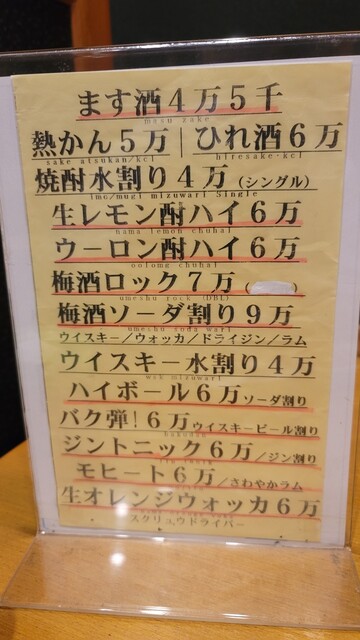 ます酒4万5千
masu zake
熱かん5万｜ひれ酒6万
sake atsukan/kcl hiresake-kcl
焼酎水割り4万（シングル）
imo/mugi mizuwari Single
生レモン酎ハイ6万
nama lemon chuhai
ウーロン酎ハイ6万
oolong chuhai
梅酒ロック7万
umeshu rock (DBL)
梅酒ソーダ割り9万
umeshu soda wari
ウイスキー/ウォッカ/ドライジン/ラム
ウイスキー水割り4万
wsk mizuwari
ハイボール6万ソーダ割り
バク弾!6万ウイスキービール割り
bakudan
ジントニック6万/ジン割り
モヒート6万/さわやかラム
生オレンジウォッカ6万
スクリュウドライバー